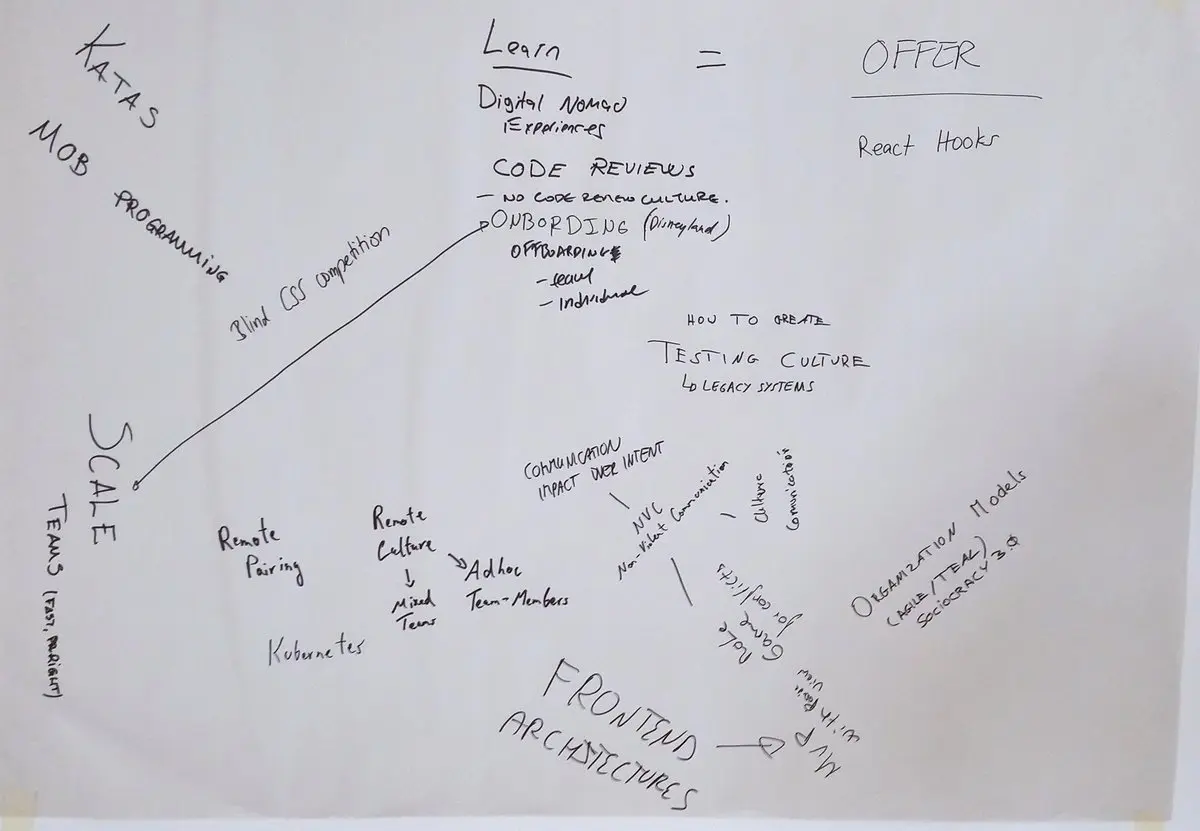 Learn
=
OFFER
Digital Nomad
Experiences
React Hooks
CODE REVIEWS
– NO CODE REVIEW CULTURE.
ONBORDING (Disneyland)
OFFBOARDING
– team
– individual
KATAS
MOB PROGRAMMING
Blind CSS competition
HOW TO CREATE
TESTING CULTURE
↳ LEGACY SYSTEMS
SCALE
TEAMS (FAST,
Remote
Pairing
Remote
Culture
↓
Mixed
Teams
↘ Adhoc
Team-Members
Kubernetes
COMMUNICATION
IMPACT OVER INTENT
NVC
Non-Violent Communication
Culture
Comunication
Role
Game
for conflicts
ORGANIZATION Models
(AGILE/TEAL)
SOCIOCRACY 3.0
FRONTEND
ARCHITECTURES
→ MVP
with
view